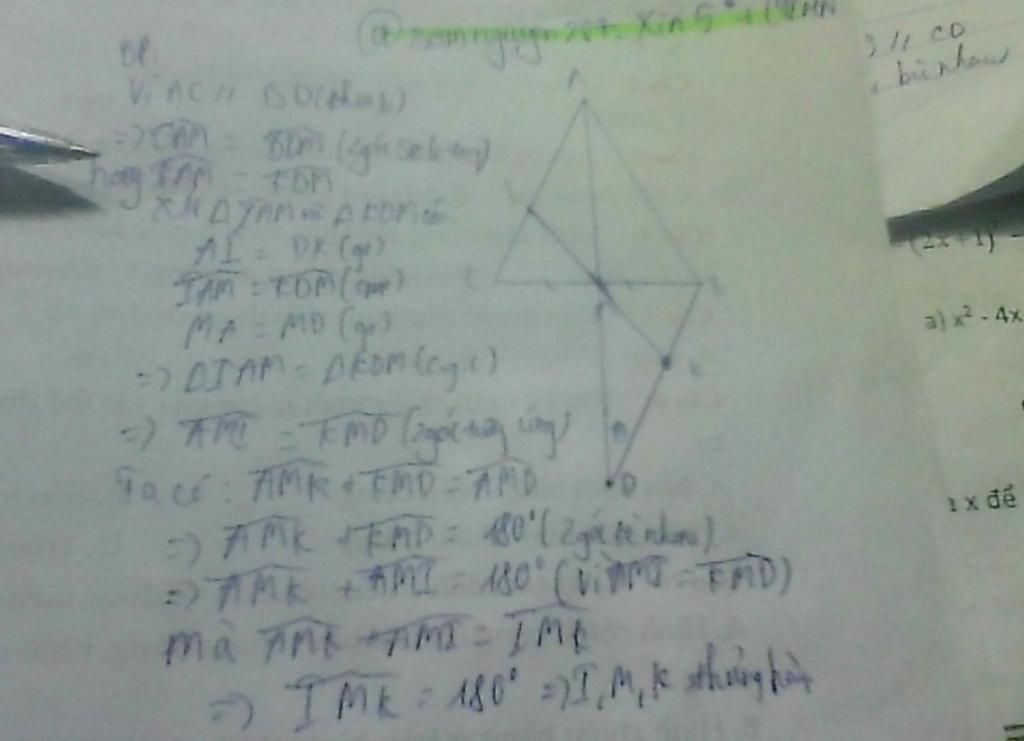 Vì AC // BD (
=> CAM = BDM (2 góc so le trong)
hay IAM = KDM
Xét Δ IAM và Δ KDM có
AI = DK (gt)
IAM = KDM (cmt)
MA = MD (gt)
=> ΔIAM = ΔKDM (c.g.c)
=> AMI = KMD (2 góc tương ứng)
Ta có: AMK + KMD = AMD
=> AMK + KMD = 180° (2 góc kề nhau)
=> AMK + AMI = 180° (vì AMI = KMD)
mà AMK + AMI = IMK
=> IMK = 180° => I, M, K thẳng hàng
A
I
C
B
K
D
// CD
, bù nhau
(2x+1) -
a) x² - 4x
x để